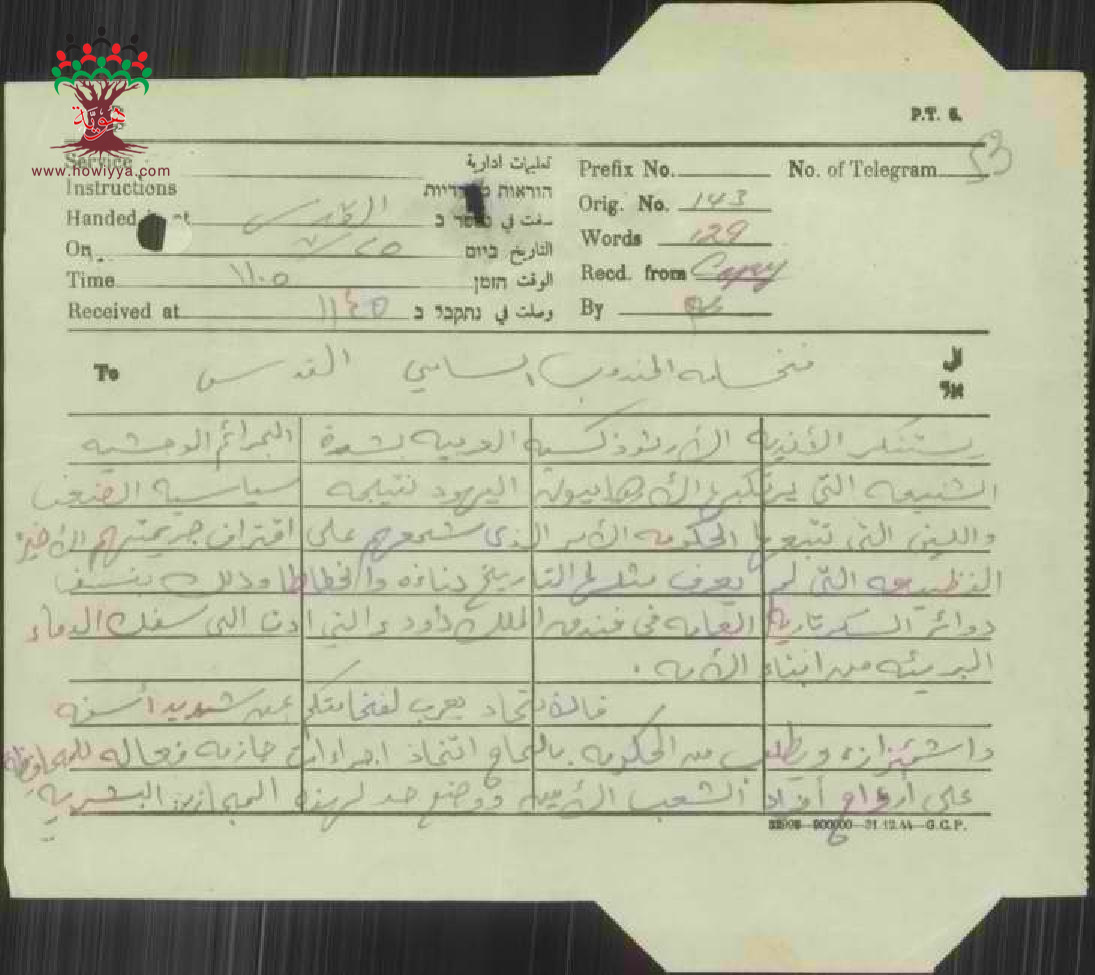 هوية
www.howiyya.com
P.T. 6.
Service تعليمات ادارية
Instructions הוראות
Handed القدس سلمت في ב
On ٢٥/٧ التاريخ ביום
Time ١١٠٥ الوقت הזמן
Received at ١١٤٥ وصلت في נתקבל ב
Prefix No. No. of Telegram 53
Orig. No. 143
Words 129
Recd. from Copy
By
To فخامة المندوب السامي القدس الى אל
يستنكر الأندية الأرثوذكسية العربية بشدة الجرائم الوحشية
الشنيعه التي يرتكبها الارهابيون اليهود نتيجه سياسية الضعف
واللين التي تتبعها الحكومه الأمر الذي شجعهم على اقتراف جريمتهم الأخيرة
الفظيعه التي لم يعرف مثلها التاريخ دناءه وانحطاطا وذلك بنسف
دوائر السكرتارية العامه في فندق الملك داود والتي ادت الى سفك الدماء
البريئه من ابناء الأمه .
فالاتحاد يعرب لفخامتكم عن شديد أسفه
واشمئزازه ويطلب من الحكومه بالحاح اتخاذ اجراءات حازمه فعاله للمحافظة
على أرواح أفراد الشعب ووضع حد لهذه المجازر البشريه
32006—900000—31.12.44—G.C.P.